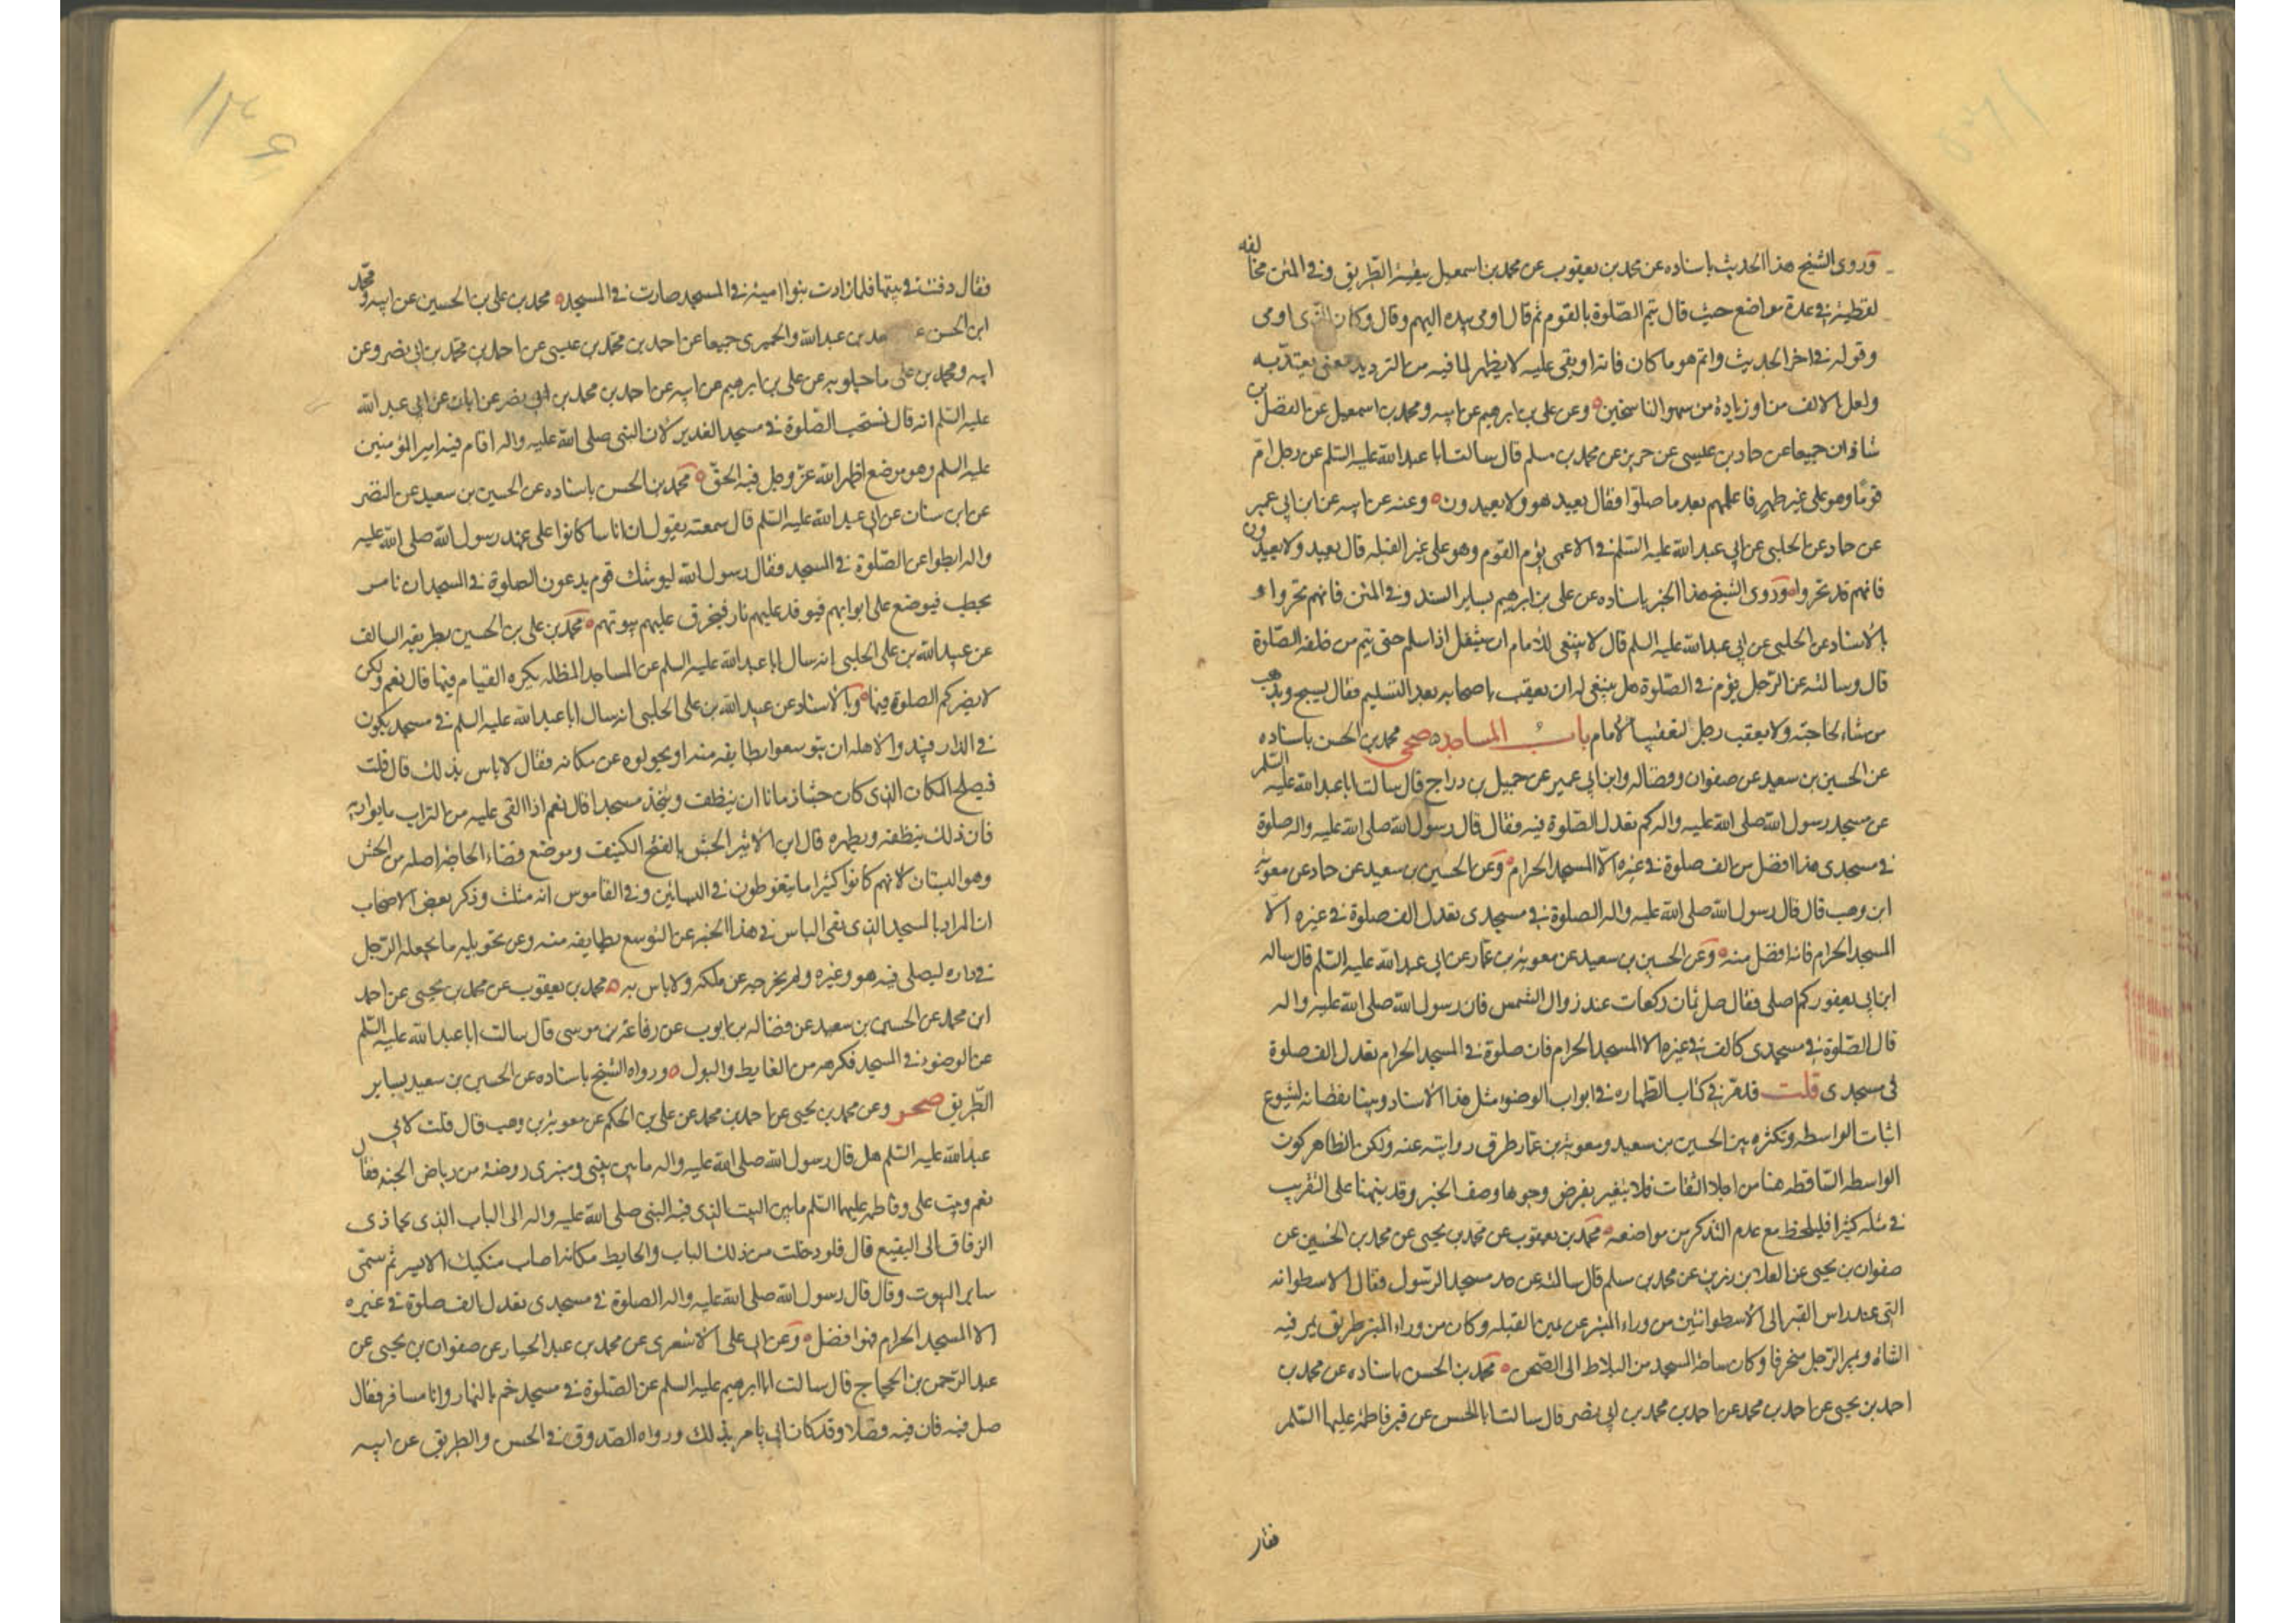 وروى الشيخ هذا الحديث باسناده عن محمد بن يعقوب عن محمد بن اسمعيل ببقية الطريق وفي المتن مخالفه
لفظية في عدة مواضع حيث قال يتم الصلوة بالقوم ثم قال اومى بيده اليهم وقال وكان الذي اومى
وقوله في اخر الحديث واتم هو ما كان فاته او بقى عليه لا يظهر لما فيه من الترديد معنى يعتد به
ولعل الالف من او زيادة من سهو الناسخين وعن علي بن ابرهيم عن ابيه ومحمد بن اسمعيل عن الفضل بن
شاذان جميعا عن حماد بن عيسى عن حريز عن محمد بن مسلم قال سالت ابا عبد الله عليه السلم عن رجل ام
قوما وهو على غير طهر فاعلمهم بعد ما صلوا فقال يعيد هو ولا يعيدون وعنه عن ابيه عن ابن ابي عمير
عن حماد عن الحلبي عن ابي عبد الله عليه السلم في الاعمى يؤم القوم وهو على غير القبلة قال يعيد ولا يعيدون
فانهم قد تحروا وروى الشيخ هذا الخبر باسناده عن علي بن ابرهيم بساير السند وفي المتن فانهم تحروا و
بالاسناد عن الحلبي عن ابي عبد الله عليه السلم قال لا ينبغي للامام ان يتنفل اذا سلم حتى يتم من خلفه الصلوة
قال وسالته عن الرجل يؤم في الصلوة هل ينبغي له ان يعقب باصحابه بعد التسليم فقال يسبح ويذهب
من شاء لحاجته ولا يعقب رجل لتعقيب الامام باب المساجد صحي محمد بن الحسن باسناده
عن الحسين بن سعيد عن صفوان وفضاله وابن ابي عمير عن جميل بن دراج قال سالت ابا عبد الله عليه السلم
عن مسجد رسول الله صلى الله عليه واله كم تعدل الصلوة فيه فقال قال رسول الله صلى الله عليه واله صلوة
في مسجدي هذا افضل من الف صلوة في غيره الا المسجد الحرام وعن الحسين بن سعيد عن حماد عن معوية
ابن وهب قال قال رسول الله صلى الله عليه واله الصلوة في مسجدي تعدل الف صلوة في غيره الا
المسجد الحرام فانه افضل منه وعن الحسين بن سعيد عن معوية بن عمار عن ابي عبد الله عليه السلم قال ساله
ابن ابي يعفور كم اصلي فقال صل ثمان ركعات عند زوال الشمس فان رسول الله صلى الله عليه واله
قال الصلوة في مسجدي كالف في غيره الا المسجد الحرام فان صلوة في المسجد الحرام تعدل الف صلوة
في مسجدي قلت قد مر في كتاب الطهاره في ابواب الوضوء مثل هذا الاسناد وبينا نقصانه لشيوع
اثبات الواسطه وتكثره بين الحسين بن سعيد ومعوية بن عمار طرق روايته عنه ولكن الظاهر كون
الواسطه الساقطه هنا من اجلا الثقات فلا يتغير بفرض وجوها وصف الخبر وقد نبهنا على التقريب
في مثله كثيرا فليلحظ مع عدم التذكر من مواضعه محمد بن يعقوب عن محمد بن يحيى عن محمد بن الحسين عن
صفوان بن يحيى عن العلا بن رزين عن محمد بن مسلم قال سالته عن حد مسجد الرسول فقال الاسطوانه
التي عند راس القبر الى الاسطوانتين من وراء المنبر عن يمين القبله وكان من وراء المنبر طريق يمر فيه
الشاة ويمر الرجل منحرفا وكان ساحة المسجد من البلاط الى الصحن محمد بن الحسن باسناده عن محمد بن
احمد بن يحيى عن احمد بن محمد عن احمد بن محمد بن ابي نصر قال سالت ابا الحسن عن قبر فاطمة عليها السلم
فقال
١٣۶
فقال دفنت في بيتها فلما زادت بنوا امية في المسجد صارت في المسجد محمد بن علي بن الحسين عن ابيه ومحمد
ابن الحسن بن عبد الله والحميرى جميعا عن احمد بن محمد بن عيسى عن احمد بن محمد بن ابي نصر وعن
ابيه ومحمد بن علي ماجيلويه عن علي بن ابرهيم عن ابيه عن احمد بن محمد بن ابي نصر عن ابان عن ابي عبد الله
عليه السلم انه قال تستحب الصلوة في مسجد الغدير لان النبي صلى الله عليه واله اقام فيه امير المؤمنين
عليه السلم وهو موضع اظهر الله عز وجل فيه الحق محمد بن الحسن باسناده عن الحسين بن سعيد عن النضر
عن ابن سنان عن ابي عبد الله عليه السلم قال سمعته يقول ان اناسا كانوا على عهد رسول الله صلى الله عليه
واله ابطوا عن الصلوة في المسجد فقال رسول الله ليوشك قوم يدعون الصلوة في المسجد ان نامر
بحطب فيوضع على ابوابهم فيوقد عليهم نار فيحرق عليهم بيوتهم محمد بن علي بن الحسين بطريقه السالف
عن عبيد الله بن علي الحلبي انه سال ابا عبد الله عليه السلم عن المساجد المظلله يكره القيام فيها قال نعم ولكن
لا يضركم الصلوة فيها وبالاسناد عن عبيد الله بن علي الحلبي انه سال ابا عبد الله عليه السلم في مسجد يكون
في الدار فيبدو لاهله ان يتوسعوا بطايفه منه او يحولوه عن مكانه فقال لا باس بذلك قال قلت
فيصلح المكان الذي كان حشا زمانا ان ينظف ويتخذ مسجدا قال نعم اذا القى عليه من التراب ما يواريه
فان ذلك ينظفه ويطهره قال ابن الاثير الحش بالفتح الكنيف وموضع قضاء الحاجة اصله من الحش
وهو البستان لانهم كانوا كثيرا ما يتغوطون في البساتين وفي القاموس انه مثلث وذكر بعض الاصحاب
ان المراد بالمسجد الذي نفى الباس في هذا الخبر عن التوسع بطايفه منه وعن تحويله ما يجعله الرجل
في داره ليصلي فيه هو وغيره ولم يخرجه عن ملكه ولا باس به محمد بن يعقوب عن محمد بن يحيى عن احمد
ابن محمد عن الحسين بن سعيد عن فضاله بن ايوب عن رفاعة بن موسى قال سالت ابا عبد الله عليه السلم
عن الوضوء في المسجد فكرهه من الغايط والبول ورواه الشيخ باسناده عن الحسين بن سعيد بساير
الطريق صحر وعن محمد بن يحيى عن احمد بن محمد عن علي بن الحكم عن معوية بن وهب قال قلت لابي
عبد الله عليه السلم هل قال رسول الله صلى الله عليه واله ما بين بيتي ومنبرى روضة من رياض الجنه فقال
نعم وبيت علي وفاطمه عليهما السلم ما بين البيت الذي فيه النبي صلى الله عليه واله الى الباب الذي يحاذى
الزقاق الى البقيع قال فلو دخلت من ذلك الباب والحايط مكانه اصاب منكبك الايسر ثم سمى
ساير البيوت وقال قال رسول الله صلى الله عليه واله الصلوة في مسجدي تعدل الف صلوة في غيره
الا المسجد الحرام فهو افضل وعن ابي علي الاشعرى عن محمد بن عبد الجبار عن صفوان بن يحيى عن
عبد الرحمن بن الحجاج قال سالت ابا ابرهيم عليه السلم عن الصلوة في مسجد خم بالنهار وانا مسافر فقال
صل فيه فان فيه فضلا وقد كان ابي يامر بذلك ورواه الصدوق في الحسن والطريق عن ابيه